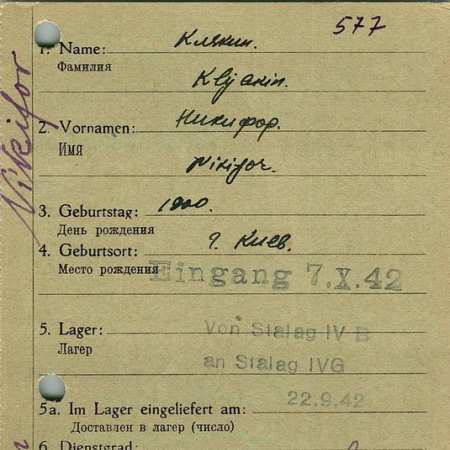 577
1. Name: Клякин.
Фамилия
Kljakin.
2. Vornamen: Никифор.
Имя
Nikifor.
3. Geburtstag: 1900.
День рождения
4. Geburtsort: г. Киев.
Место рождения
Eingang 7.X.42
5. Lager: Von Stalag IV B
Лагер
an Stalag IVG
22.9.42
5a. Im Lager eingeliefert am:
Доставлен в лагер (число)
6. Dienstgrad:
Nikifor